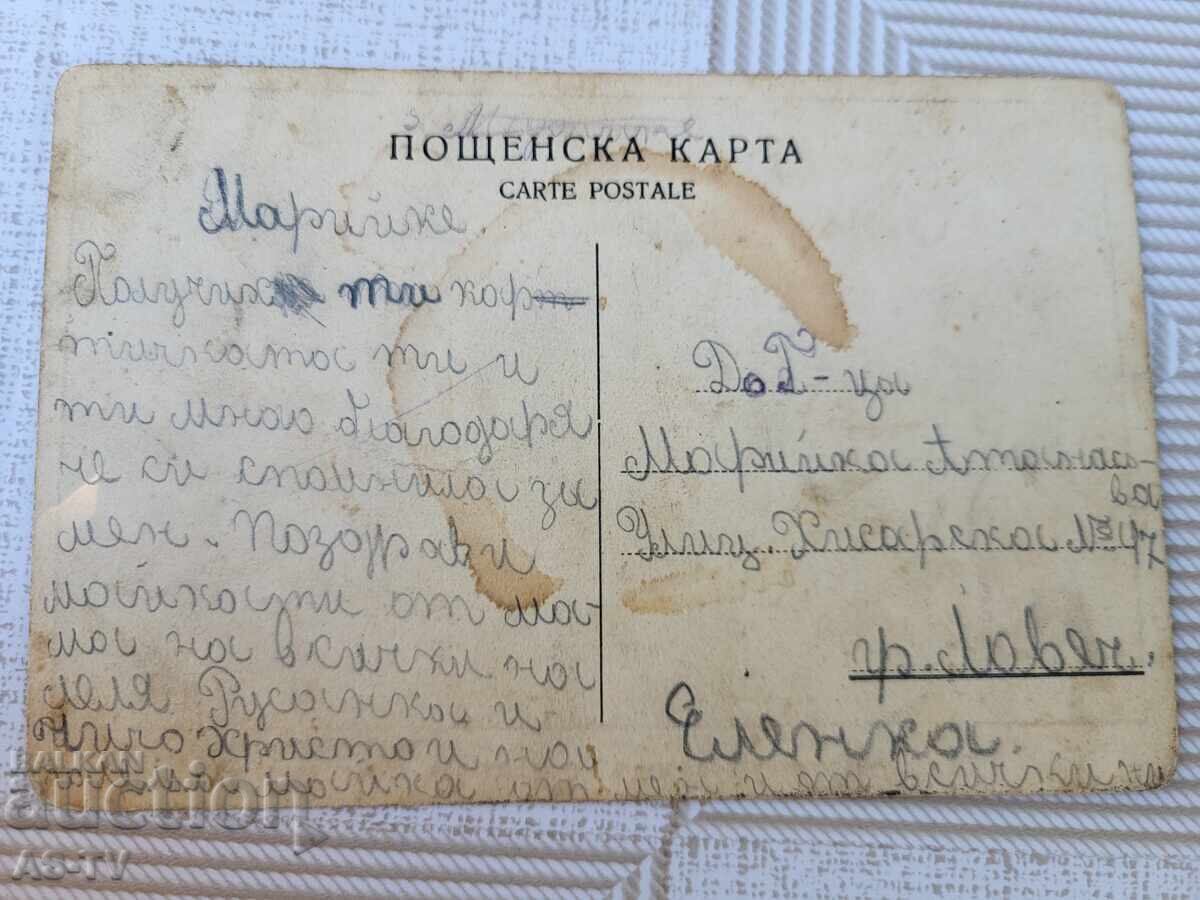 ПОЩЕНСКА КАРТА
CARTE POSTALE
Марийке.
Получих ти кар
тичката ти и
ти мнао благодаря
че си спомнила за
мен. Поздрави
майкати от ма-
ма на всички на
леля Русанка и
Чичо Христо и на
майка от мен и от всички ни
До Г-ца
Марийка Атанасо-
ва
Улиц. Хисарска № 47
гр. Ловеч.
Еленка.
BALKAN
auction
AS-TV